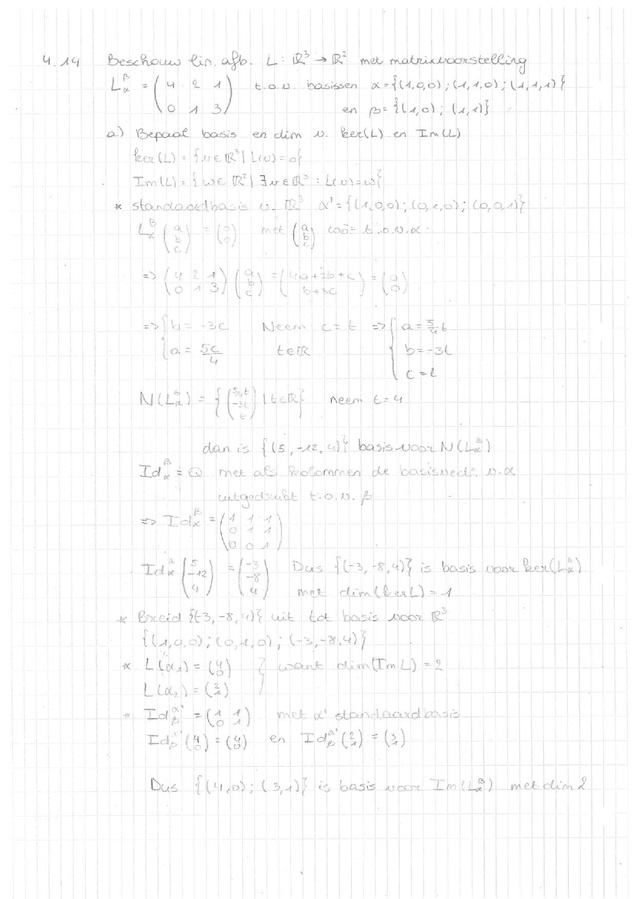 4.14 Beschouw lin. afb. L: ℝ³ → ℝ² met matrixvoorstelling
L_α^β = (4 2 1 / 0 1 3) t.o.v. basissen α = {(1,0,0); (1,1,0); (1,1,1)}
en β = {(1,0); (1,1)}
a) Bepaal basis en dim v. ker(L) en Im(L)
ker(L) = {v ∈ ℝ³ | L(v) = 0}
Im(L) = {w ∈ ℝ² | ∃ v ∈ ℝ³ : L(v) = w}
* standaardbasis v. ℝ³ α' = {(1,0,0); (0,1,0); (0,0,1)}
L_α^β (a b c) = (0 0) met (a b c) coö= t.o.v. α
=> (4 2 1 / 0 1 3) (a b c) = (4a+2b+c / b+3c) = (0 0)
=> { b = -3c Neem c = t => { a = 5/4 t
a = 5c/4 t ∈ ℝ b = -3t
c = t
N(L_α^β) = { (5/4 t / -3t / t) | t ∈ ℝ } neem t = 4
dan is {(5, -12, 4)} basis voor N(L_α^β)
Id_α^β = met als kolommen de basisvect. v. α
uitgedrukt t.o.v. β
=> Id_α^β = (1 1 1 / 0 1 1 / 0 0 1)
Id_α (5 / -12 / 4) = (-3 / -8 / 4) Dus {(-3, -8, 4)} is basis voor ker(L_α^β)
met dim(ker L) = 1
* Breid {(-3, -8, 4)} uit tot basis voor ℝ³
{(1,0,0); (0,1,0); (-3,-8,4)}
* L(α₁) = (4 0) } want dim(Im L) = 2
L(α₂) = (2 1)
* Id_β^α' = (1 1 / 0 1) met α' standaardbasis
Id_β^α' (4 0) = (4 0) en Id_β^α' (2 1) = (3 1)
Dus {(4,0); (3,1)} is basis voor Im(L_α^β) met dim 2